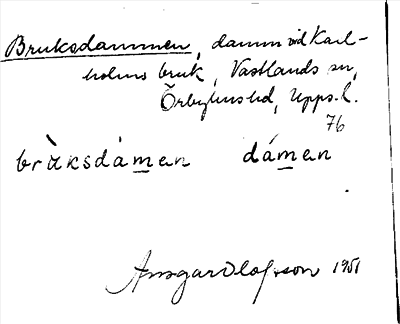 Bruksdammen, damm vid Karl-
holms bruk, Västlands sn,
Örbyhus hd, Upps. l.
76
brùksdámen dámen
Ansgar Olofsson 1951